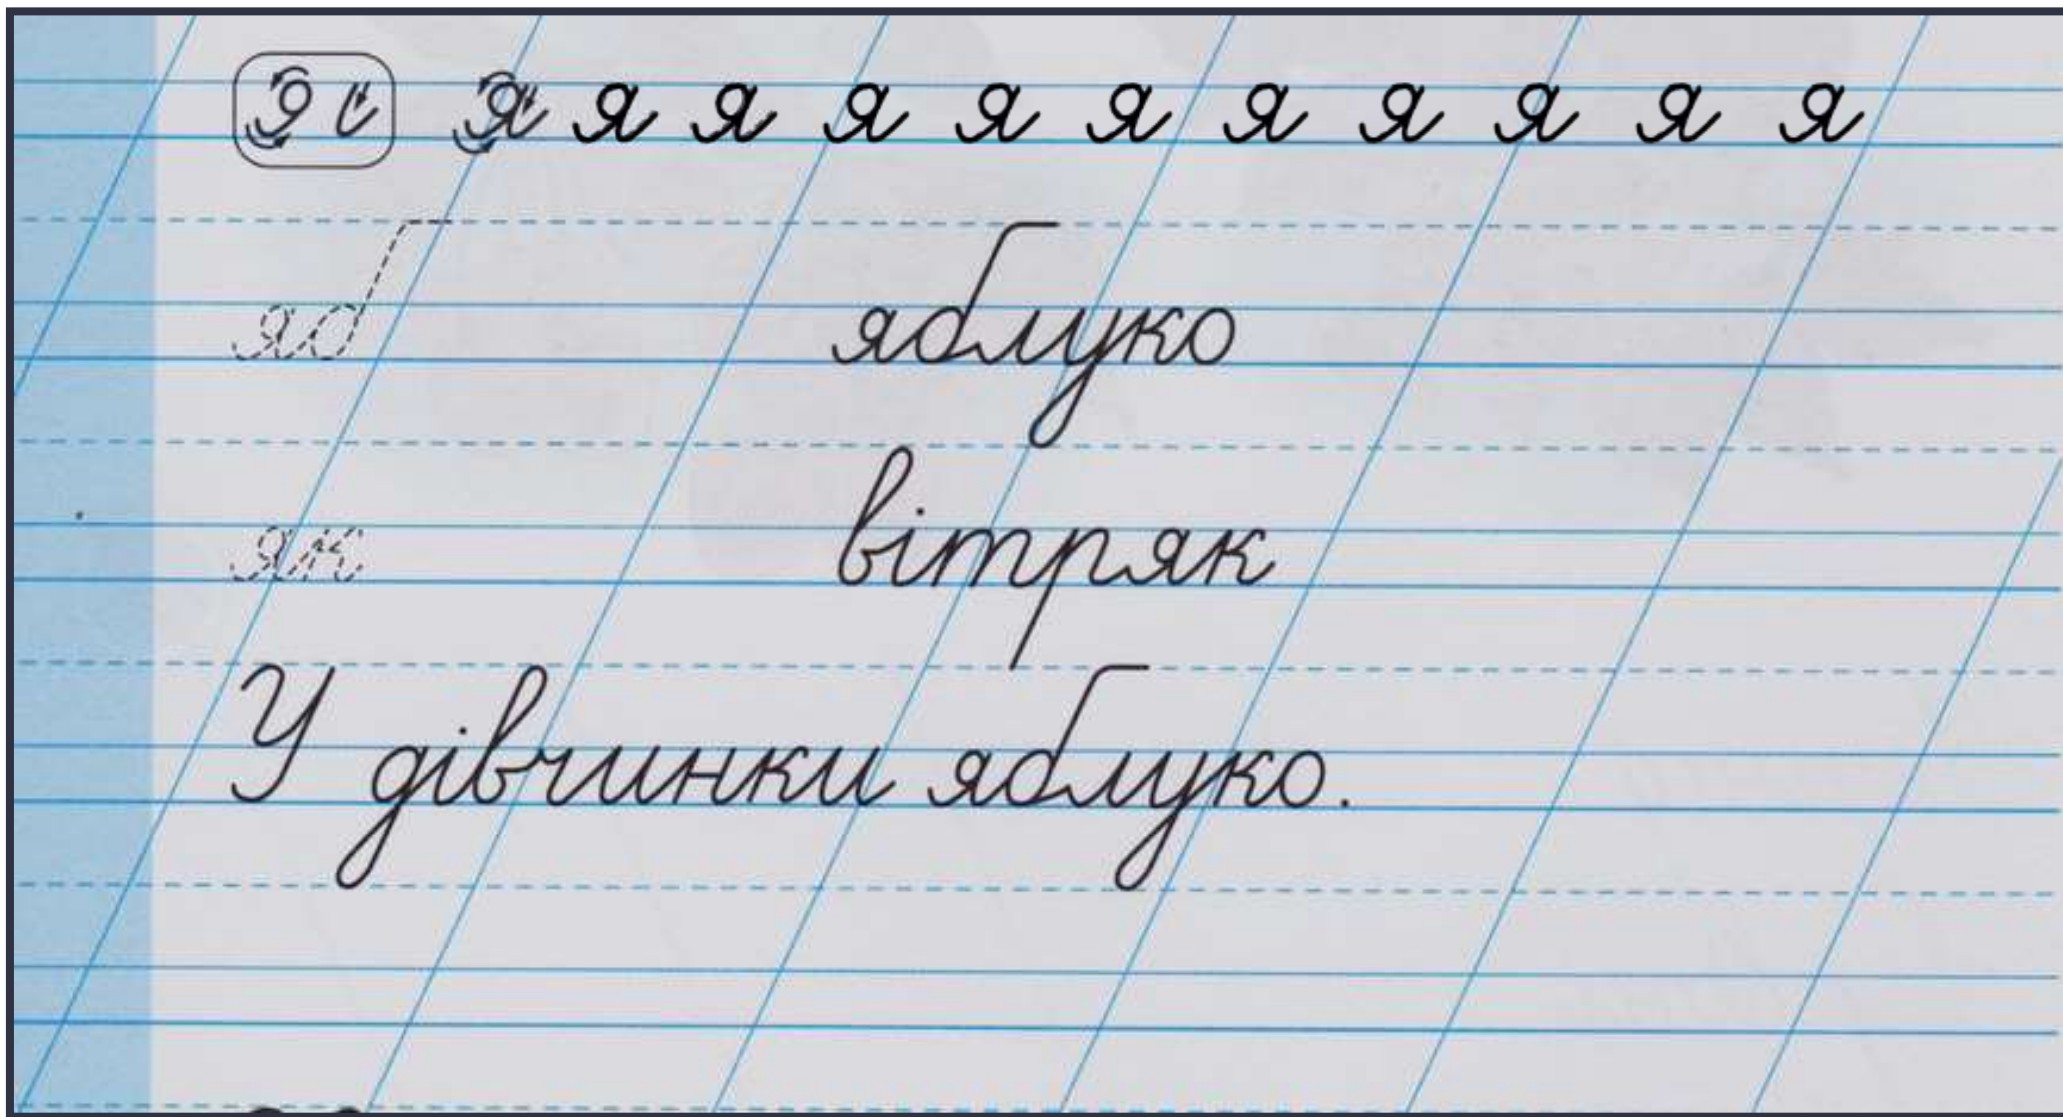 я я я я я я я я я я я
яб яблуко
як вітряк
У дівчинки яблуко.